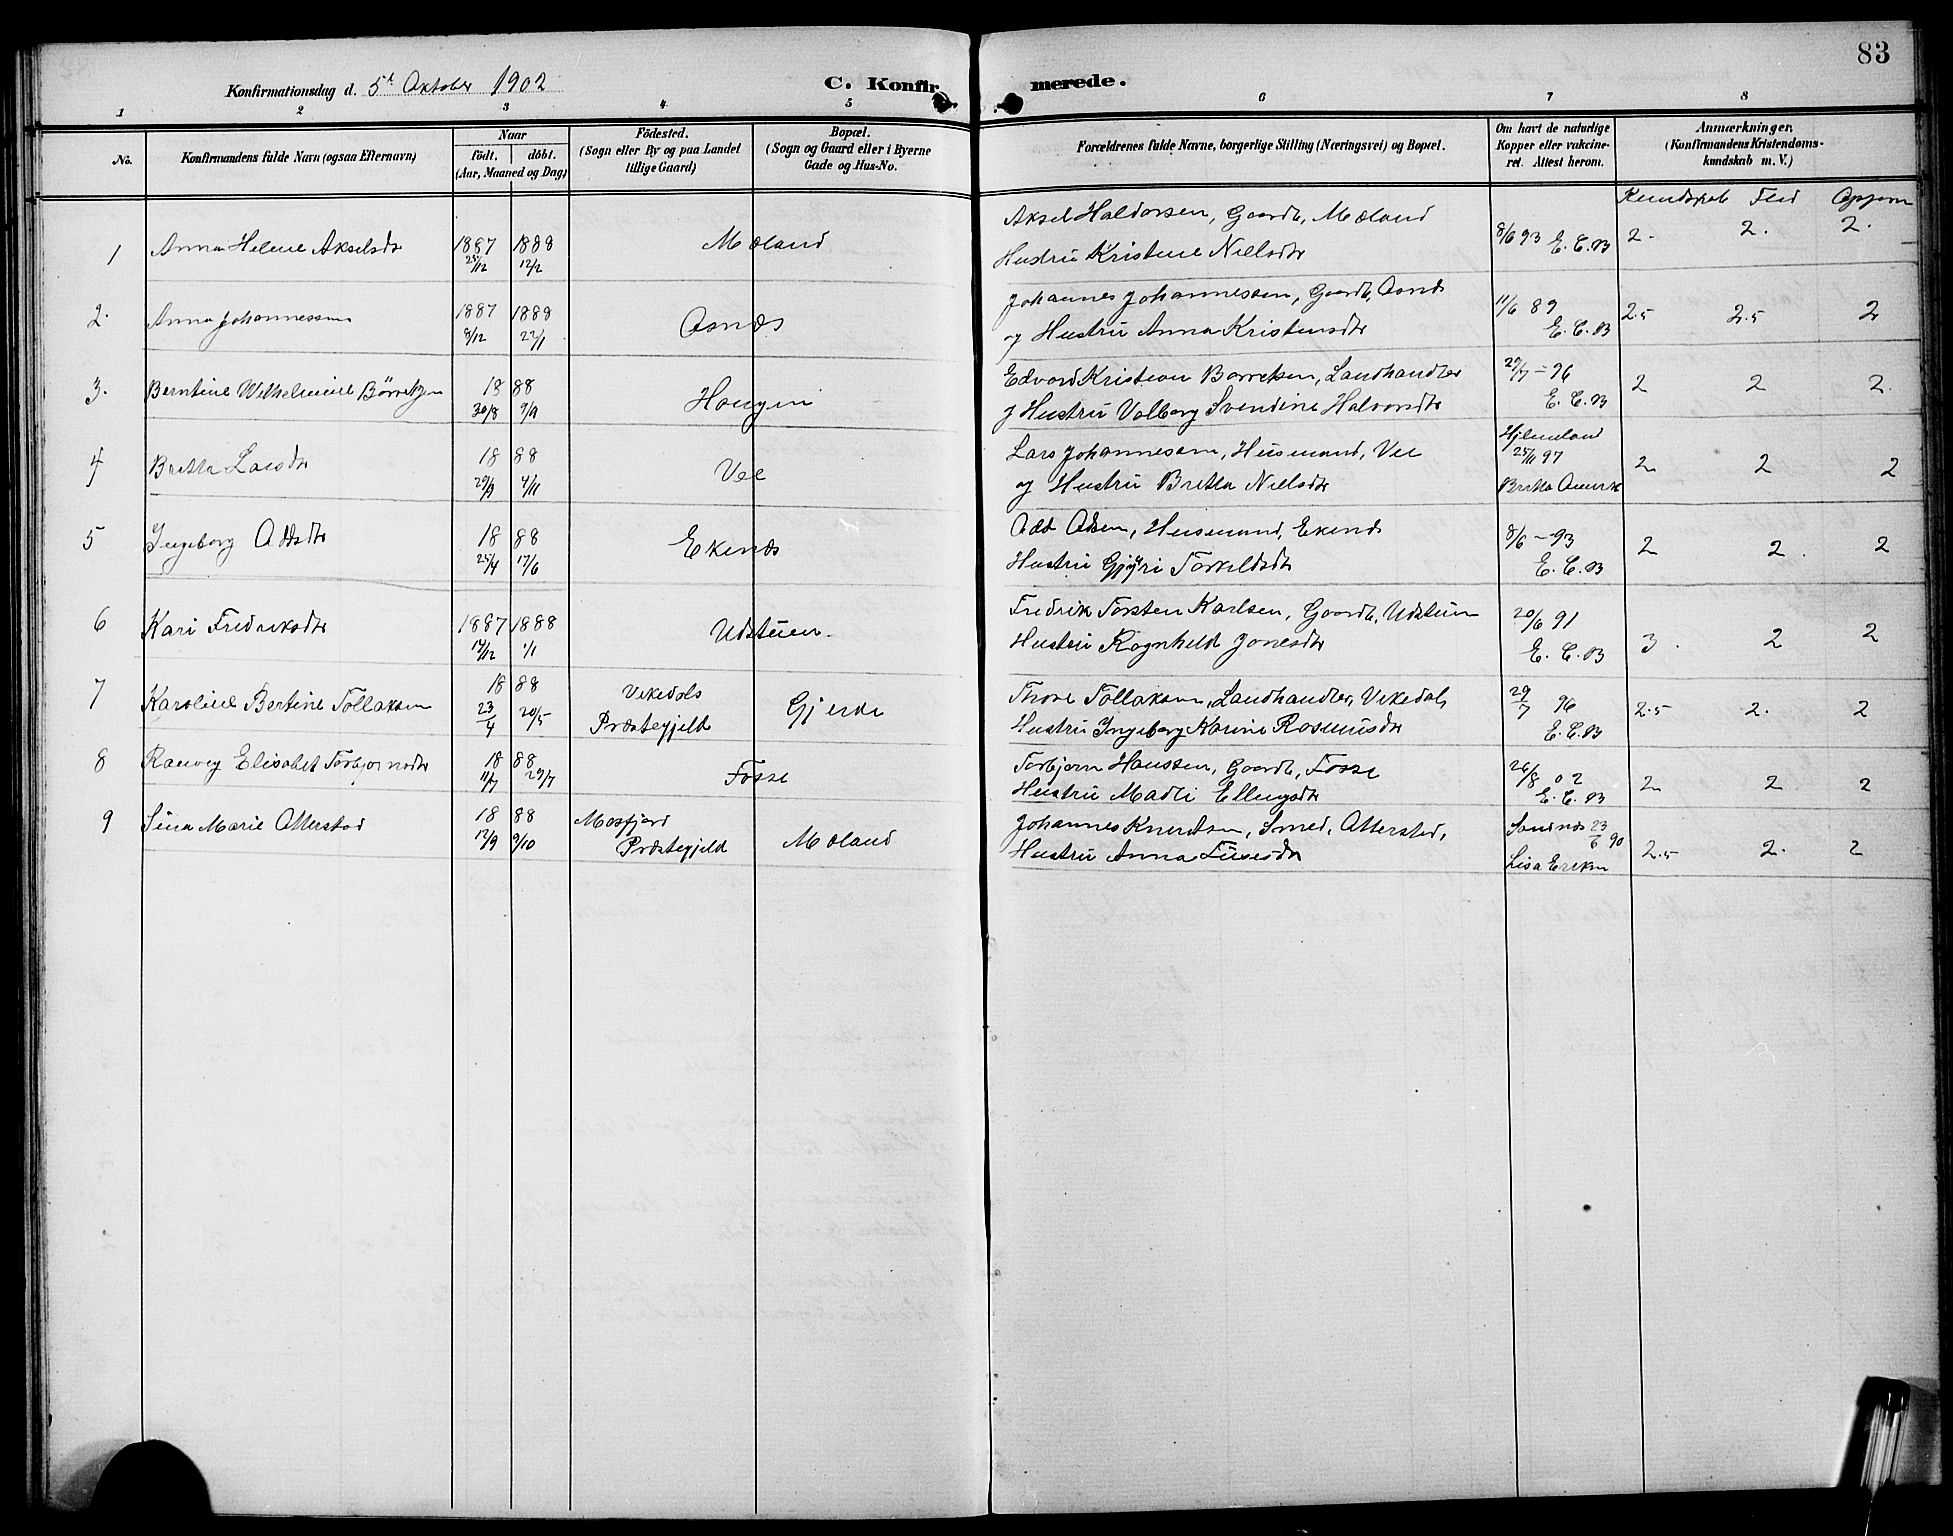 83
Konfirmationsdag d. 5t Oktober 1902 C. Konfirmerede.
1 2 3 4 5 6 7 8
No. Konfirmandens fulde Navn (ogsaa Efternavn) Naar födt. döbt. (Aar, Maaned og Dag) Födested. (Sogn eller By og paa Landet tillige Gaard) Bopæl. (Sogn og Gaard eller i Byerne Gade og Hus-No. Forældrenes fulde Navne, borgerlige Stilling (Næringsvei) og Bopæl. Om havt de naturlige Kopper eller vakcineret. Attest herom. Anmærkninger. (Konfirmandens Kristendomskundskab m. V.)
Kundskab Flid Opförs
1 Anna Helene Akselsdr 1887 1888 Mæland Aksel Haldorsen, Gaardb, Mæland 8/6 93 E. C. B 2. 2. 2.
25/12 12/2 Hustru Kristene Nielsdtr
2. Anna Johannessen 1887 1888 Asnæs Johannes Johannessen, Gaardb, Asnæs 11/6 89 2.5 2.5 2
8/12 22/1 og Hustru Anna Kristensdtr E. C. B
3. Berntine Wilhelmine Börretzen 18 88 Haugen Edvard Kristian Borretzen, Landhandler 29/7 = 96 2 2 2.
30/8 9/9 og Hustru Valborg Svendine Halvorsdtr E. C. B
4 Britta Larsdtr 18 88 Vee Lars Johannessen, Husmand, Vee Hjelmeland 25/11 97 2 2 2
29/9 4/11 og Hustru Britta Nielsdtr Britta
5 Ingeborg Addsdtr 18 88 Ekenæs Add Olsen, Husmand, Ekenæs 8/6 - 93 2 2. 2
25/4 17/6 Hustru Gjyri Torkeldsdtr E. C. B
6 Kari Fredriksdtr 1887 1888 Udstuen. Fredrik Torsten Karlsen, Gaardb, Udstuen 20/6 91 3. 2 2
1/1 Hustru Ragnhild Jonesdtr E. C. B
7 Karoline Bertine Tollaksen 18 88 Vikedals Præstegjeld Gjerde Thore Tollaksen, Landhandler, Vikedal, 29/7 96 2.5 2. 2
23/4 20/5 Hustru Ingeborg Karine Rasmusdtr E. C. B
8 Ranveg Elisabet Torbjornsdtr 18 88 Fosse Torbjorn Hanssen, Gaardb, Fosse 26/8 02 2 2 2
11/7 29/7 Hustru Madli Ellingsdtr E. C. B
9 Sina Marie Atterstad 18 88 Mosfjord Præstegjeld Mæland Johannes Knudtsen, Smed, Atterstad, Sandnæs 23/6 90 2.5 2. 2
12/9 9/10 Hustru Anna Lisa Eriksen